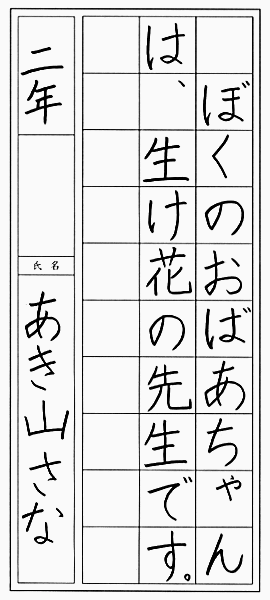 ぼくのおばあちゃん
は、生け花の先生です。
二年
氏名
あき山さな